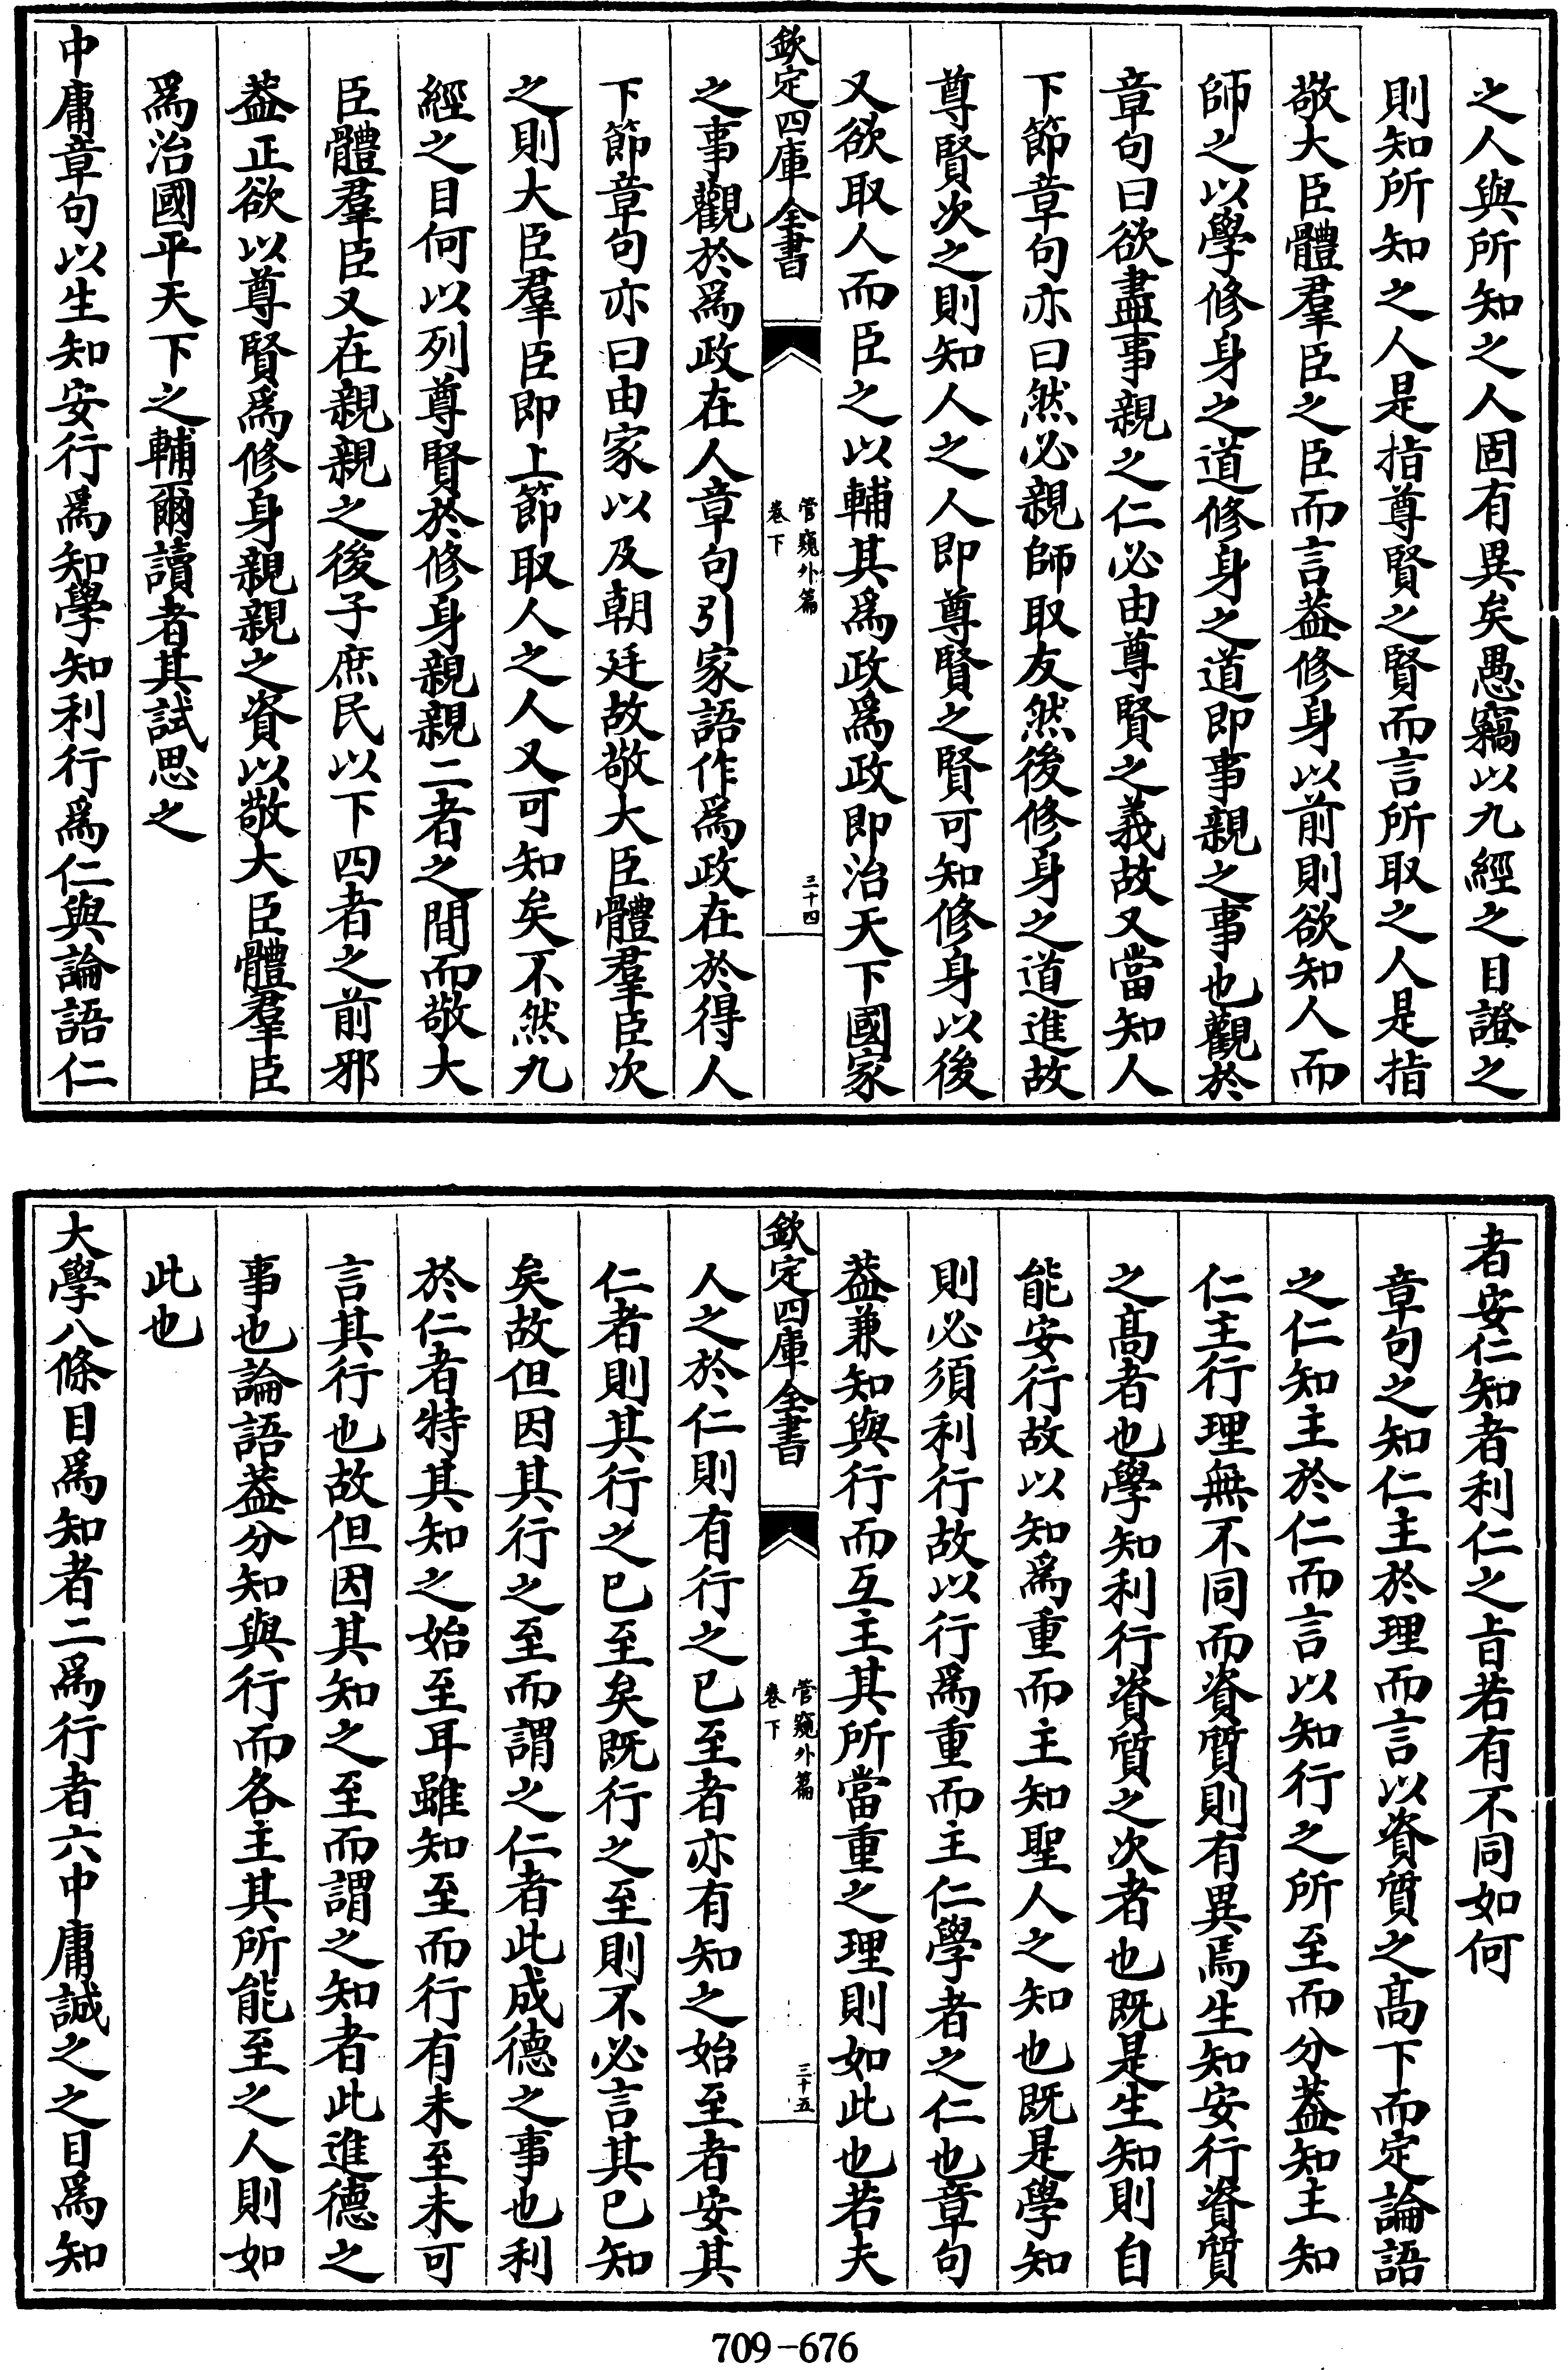 之人與所知之人固有異矣愚竊以九經之目證之
則知所知之人是指尊賢之賢而言所取之人是指
敬大臣體羣臣之臣而言葢修身以前則欲知人而
師之以學修身之道修身之道即事親之事也觀於
章句曰欲盡事親之仁必由尊賢之義故又當知人
下節章句亦曰然必親師取友然後修身之道進故
尊賢次之則知人之人即尊賢之賢可知修身以後
又欲取人而臣之以輔其為政為政即治天下國家
欽定四庫全書
管窺外篇
卷下
三十四
之事觀於為政在人章句引家語作為政在於得人
下節章句亦曰由家以及朝廷故敬大臣體羣臣次
之則大臣羣臣即上節取人之人又可知矣不然九
經之目何以列尊賢於修身親親二者之間而敬大
臣體羣臣又在親親之後子庶民以下四者之前邪
葢正欲以尊賢為修身親親之資以敬大臣體羣臣
為治國平天下之輔爾讀者其試思之
中庸章句以生知安行為知學知利行為仁與論語仁
者安仁知者利仁之㫖若有不同如何
章句之知仁主於理而言以資質之髙下而定論語
之仁知主於仁而言以知行之所至而分葢知主知
仁主行理無不同而資質則有異焉生知安行資質
之髙者也學知利行資質之次者也既是生知則自
能安行故以知為重而主知聖人之知也既是學知
則必須利行故以行為重而主仁學者之仁也章句
葢兼知與行而互主其所當重之理則如此也若夫
欽定四庫全書
管窺外篇
卷下
三十五
人之於仁則有行之已至者亦有知之始至者安其
仁者則其行之已至矣既行之至則不必言其已知
矣故但因其行之至而謂之仁者此成德之事也利
於仁者特其知之始至耳雖知至而行有未至未可
言其行也故但因其知之至而謂之知者此進德之
事也論語葢分知與行而各主其所能至之人則如
此也
大學八條目為知者二為行者六中庸誠之之目為知
709-676